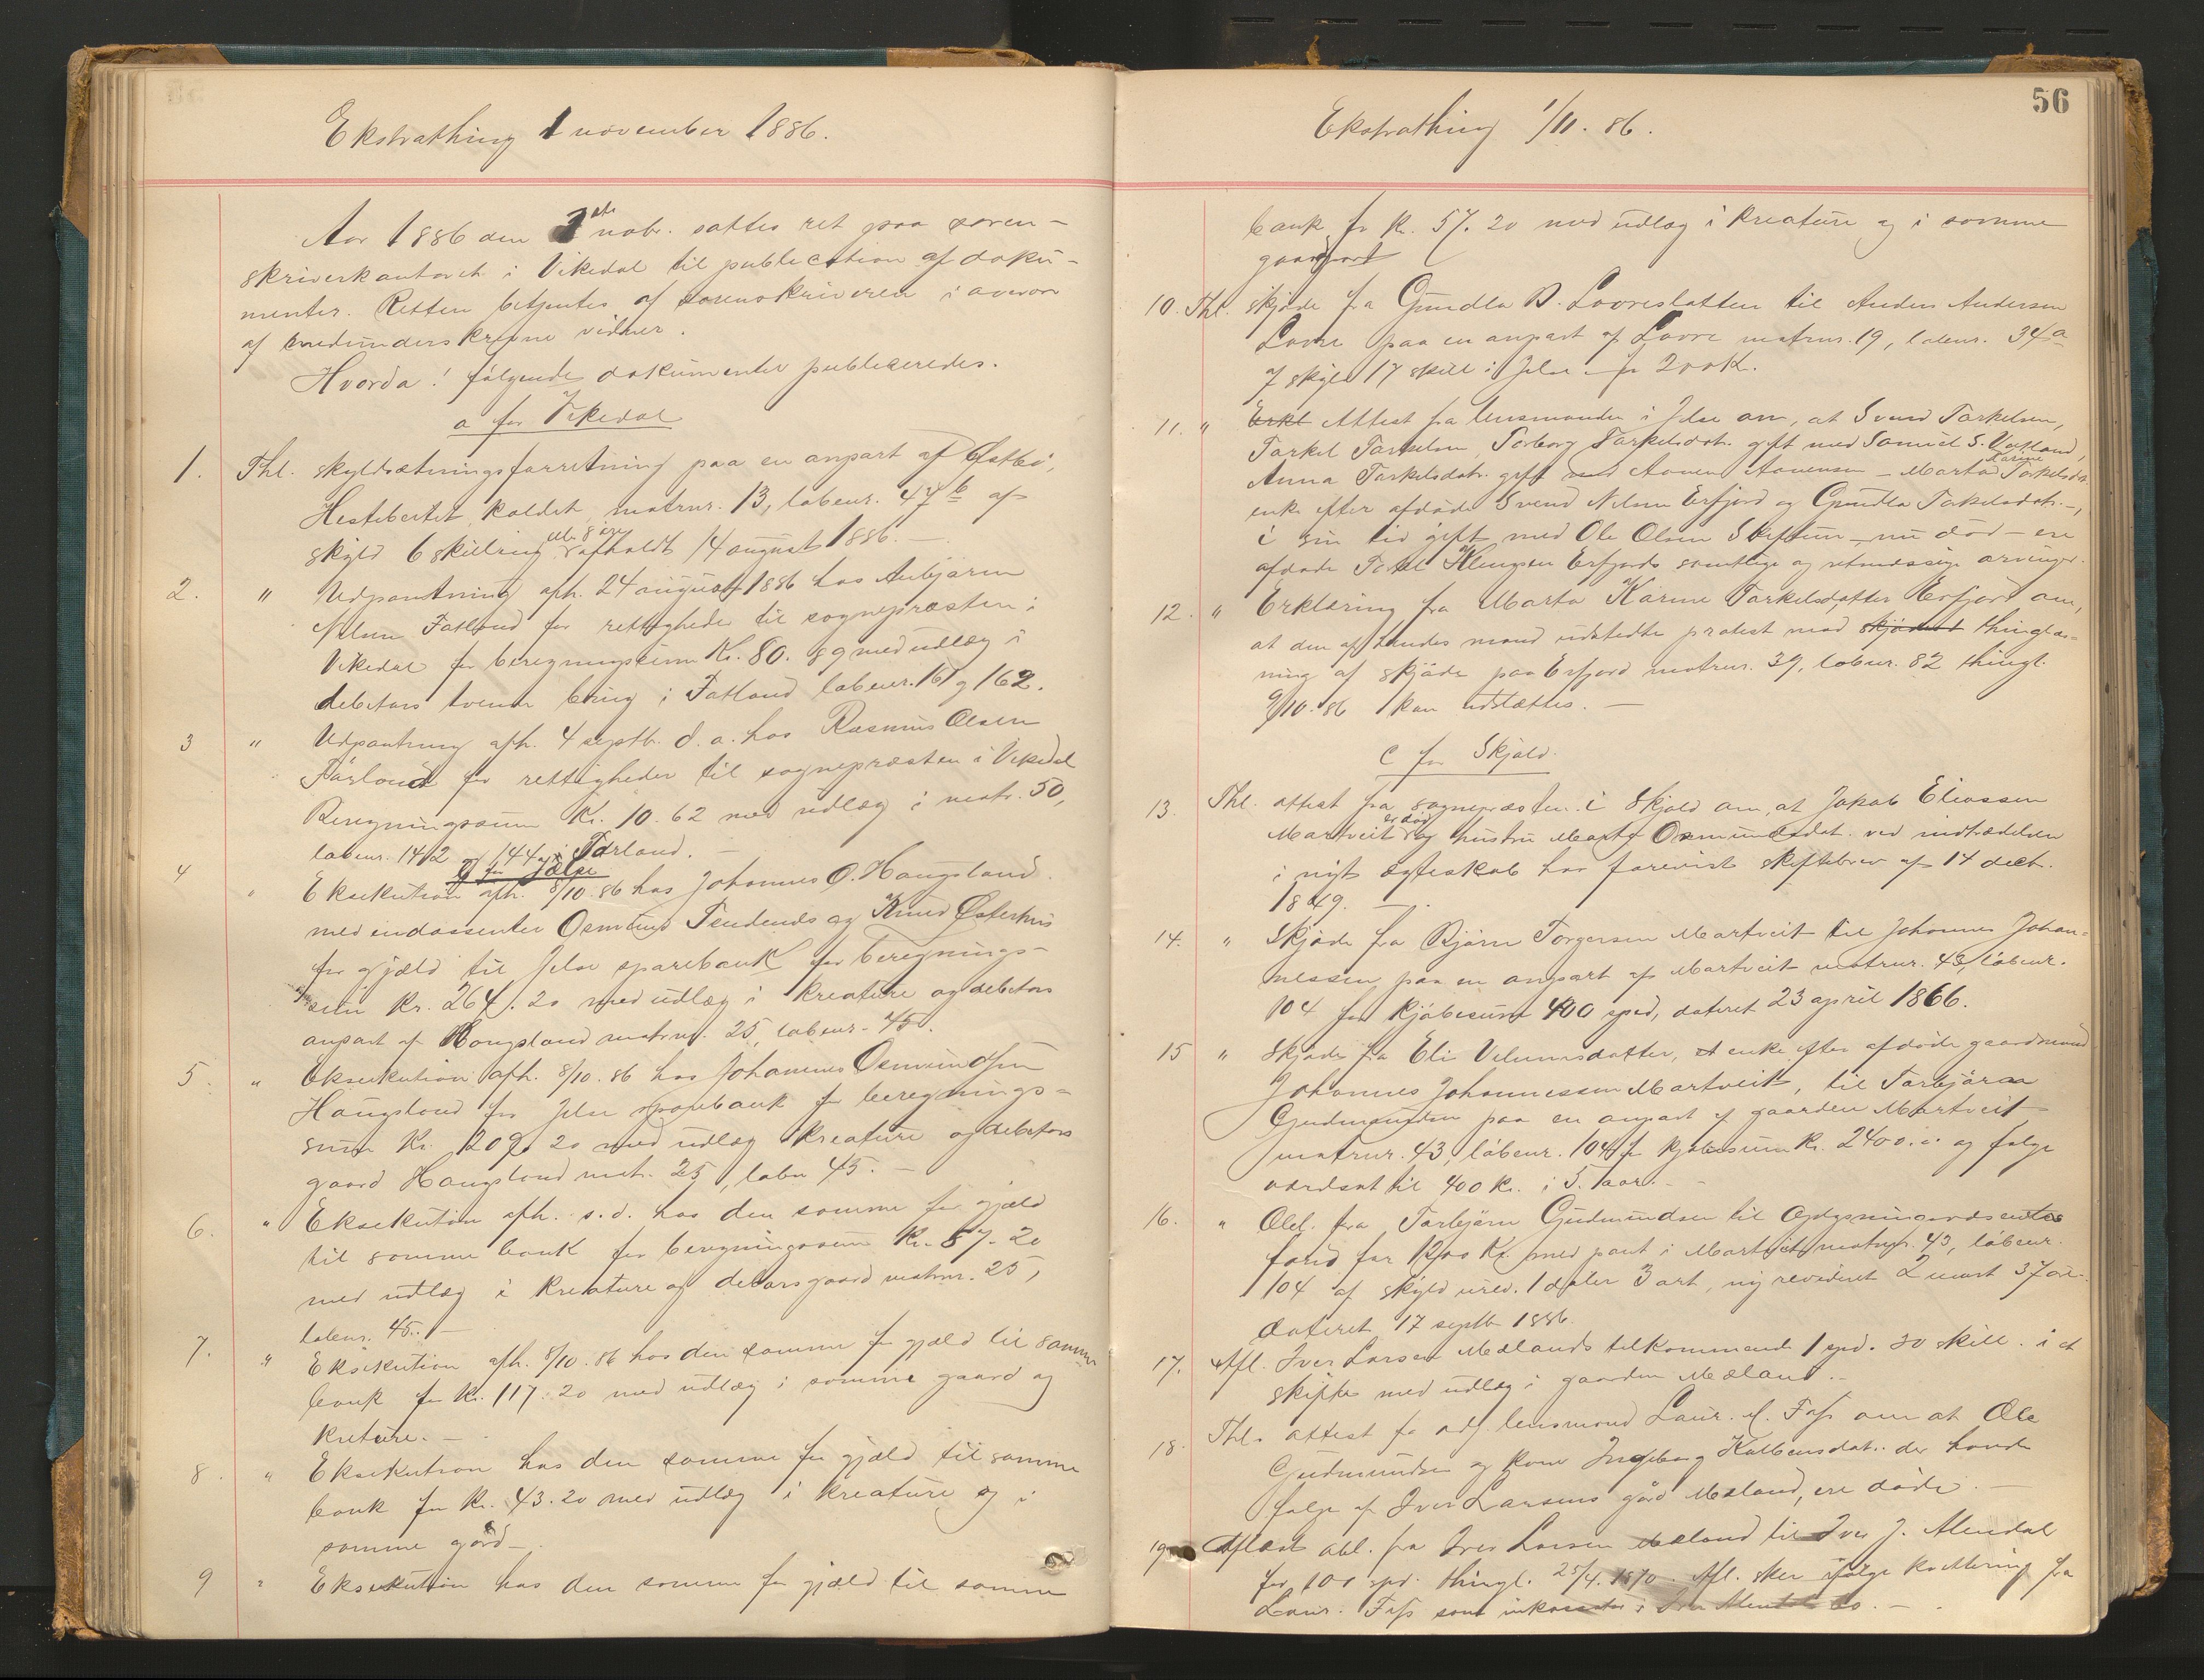 Ekstrathing 1 november 1886.
Aar 1886 den 1ste nobr. sattes ret paa soren-
skriverkontoret i Vikedal til publication af doku-
menter. Retten betjentes af sorenskriveren i overvær
af medunderskrevne vidner.
Hvorda! følgende dokumenter publiceredes.
a for Vikedal
1. Thl. skyldsætningsforretning paa en anpart af Østbø,
Hestebertet kaldet, matrnr. 13, løbenr. 47 b af
skyld 6 skilling afholdt 14 august 1886. —
2. " Udpantning afh. 24 august 1886 hos Anbjørn
Nilsen Fatland for rettigheder til sognepræsten i
Vikedal for beregningssum Kr. 80. 89 med udlæg i
debitors tvende brug i Fatland løbenr. 161 og 162.
3 " Udpantning afh. 4 septb. d. a. hos Rasmus Olsen
Førland for rettigheder til sognepræsten i Vikedal
Beregningssum Kr. 10.62 med udlæg i matr. 50,
løbenr. 142 og 144 i Førland. —
b for Jælse
4 " Eksekution afh. 8/10.86 hos Johannes O. Haugsland
med endossenter Osmund Tendenes og Knud Østerhus
for gjæld til Jelse sparebank for beregnings-
sum Kr. 264.20 med udlæg i kreature og debitors
anpart af Haugsland matrnr. 25, løbenr. 45.
5. " Eksekution afh. 8/10.86 hos Johannes Osmundsen
Haugsland for Jelse sparebank for beregnings-
sum Kr. 209.20 med udlæg kreature og debitors
gaard Haugsland matr. 25, løbn 45. —
6. " Eksekution afh. s.d. hos den samme for gjæld
til samme bank for beregningssum Kr. 57.20
med udlæg i kreature og debitorsgaard matrnr. 25,
løbenr. 45. —
7. " Eksekution afh. 8/10.86 hos den samme for gjæld til samme
bank for Kr. 117.20 med udlæg i samme gaard og
kreture. —
8. " Eksekution hos den samme for gjæld til samme
bank for Kr. 43.20 med udlæg i kreature og i
samme gård —.
9 " Eksekution hos den samme for gjæld til samme
56
Ekstrathing 1/11. 86.
bank for Kr. 57.20 med udlæg i kreature og i samme
gaard
10. Thl. skjøde fra Gundla D. Lovreslatten til Anders Andersen
Lovre paa en anpart af Lovre matrnr. 19, løbenr. 34 a
af skyld 17 skill i Jelse for 200 K.
11. " Erkl Attest fra lensmanden i Jelse om, at Svend Torkelsen,
Torkel Torkelsen, Torborg Torkelsdatr. gift med Samuel S. Vatland,
Anna Torkelsdatr. gift med Aamen Aamensen — Marta Karine Torkelsdatr.
enke efter afdøde Svend Nilsen Erfjord og Gundla Torkelsdatr. —,
i sin tid gift med Ole Olsen — nu død — ere
afdøde Torkel Erfjords samtlige og retmæssige arvinger.
12. " Erklæring fra Marta Karine Torkelsdatter Erfjord om,
at den af hendes mand udstedte protest mod skjødet thinglæs-
ning af skjøde paa Erfjord matrnr. 39, løbenr. 82 thingl.
9/10.86 kan udslættes. —
c for Skjold.
13. Thl. attest fra sognepræsten i Skjold om, at Jakob Eliassen
Martveit er død og hustru Marta Osmundsdat. ved indtrædelsen
i nyt ægteskab har forevist skiftebrev af 14 decb.
1849. —
14. " Skjøde fra Bjørn Torgersen Martveit til Johannes Johan-
nessen paa en anpart af Martveit matrnr. 43, løbenr.
104 for kjøbesum 400 spd, dateret 23 april 1866.
15 " Skjøde fra Eli Velumsdatter, enke efter afdøde gaardmand
Johannes Johannessen Martveit, til Torbjørn
Gudmundsen paa en anpart af gaarden Martveit
matrnr. 43, løbenr. 104 for kjøbesum Kr. 2400.00 og følge
værdsat til 400 Kr. i 5. aar. —
16. " Obl. fra Torbjørn Gudmundsen til Oplysningsvæsenets
fond for 1200 Kr. med pant i Martveit matrnr. 43, løbenr.
104 af skyld urev. 1 daler 3 ort, ny revideret 2 mark 37 øre.
Dateret 17 septb 1886.
17. Afl. Iver Larsen Mælands tilkommende 1 spd. 30 skill. i et
skifte med udlæg i gaarden Mæland. —
18. Thl. attest fra adj. lensmand Laur. M. Foss om at Ole
Gudmundsen og kone Ingeborg Kolbensdat. der havde
følge af Iver Larsens gård Mæland, ere døde. —
19 Aflæst obl. fra Iver Larsen Mæland til Iver J. Alendal
for 100 spd. thingl. 25/4.1870. Afl. sker ifølge kvittering fra
Laur. Foss som inkassator i Iver Alendals bo. —